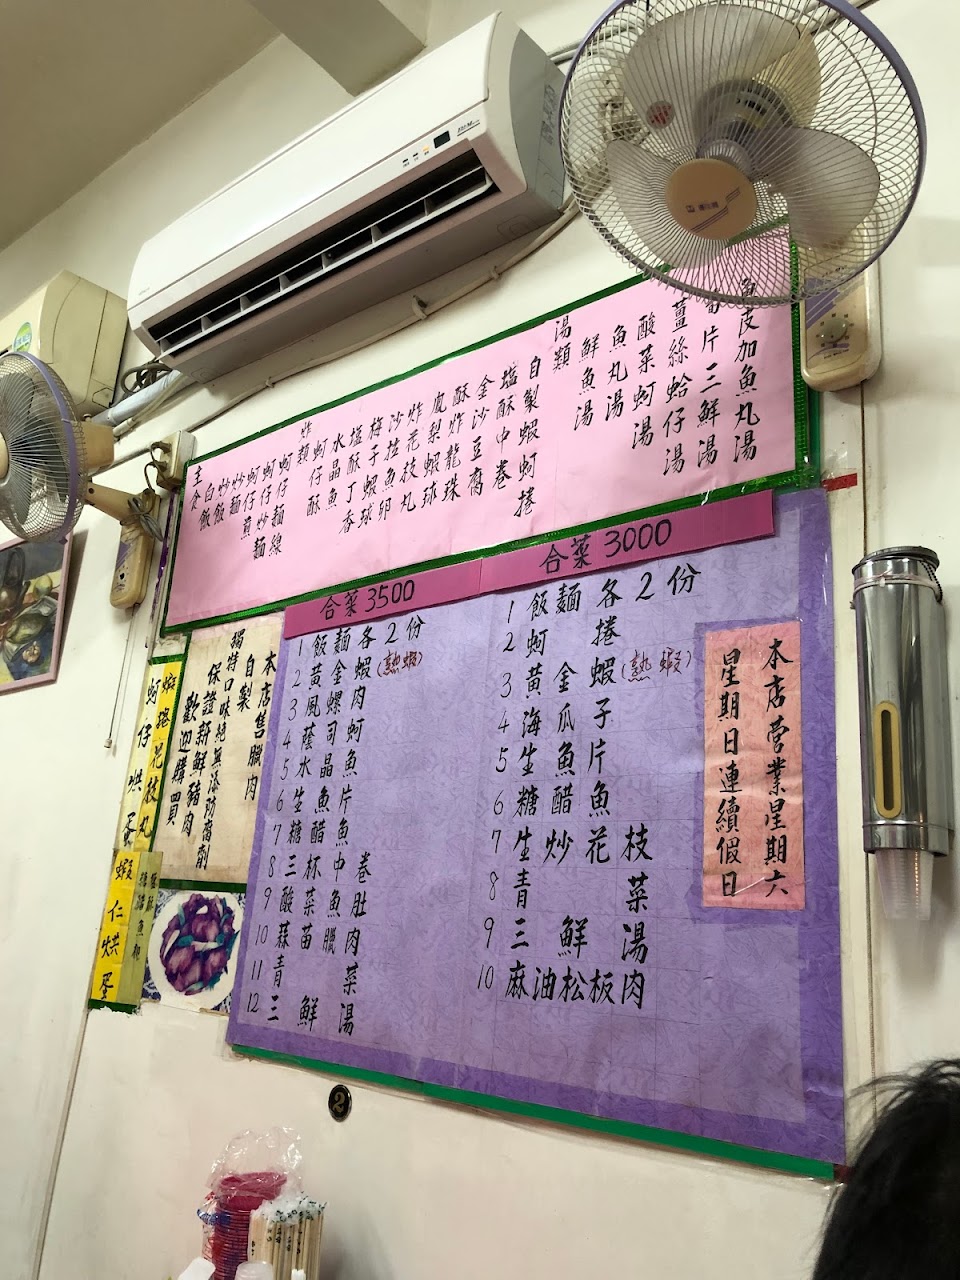 主食
白飯
炒飯
炒麵
蚵仔煎
蚵仔炒麵
蚵仔麵線
炸類
蚵仔酥
水晶魚
塩酥丁香
梅子蝦球
沙拉魚卵
炸花枝丸
鳳梨蝦球
酥炸龍珠
金沙豆腐
塩酥中卷
自製蝦蚵捲
湯類
鮮魚湯
魚丸湯
酸菜蚵湯
薑絲蛤仔湯
片三鮮湯
魚皮加魚丸湯
合菜3500
1 飯麵各2份
2 黃金蝦(熱蝦)
3 風螺肉
4 蔭司蚵
5 水晶魚
6 生魚片
7 糖醋魚
8 三杯中卷
9 酸菜魚肚
10 蒜苗臘肉
11 青菜
12 三鮮湯
合菜3000
1 飯麵各2份
2 蚵捲
3 黃金蝦(熱蝦)
4 海瓜子
5 生魚片
6 糖醋魚
7 生炒花枝
8 青菜
9 三鮮湯
10 麻油松板肉
本店營業星期六
星期日連續假日
本店售臘肉
自製
獨特口味絕無添防腐劑
保證新鮮豬肉
歡迎購買
花枝丸
蚵仔烘蛋
蝦仁烘蛋
2